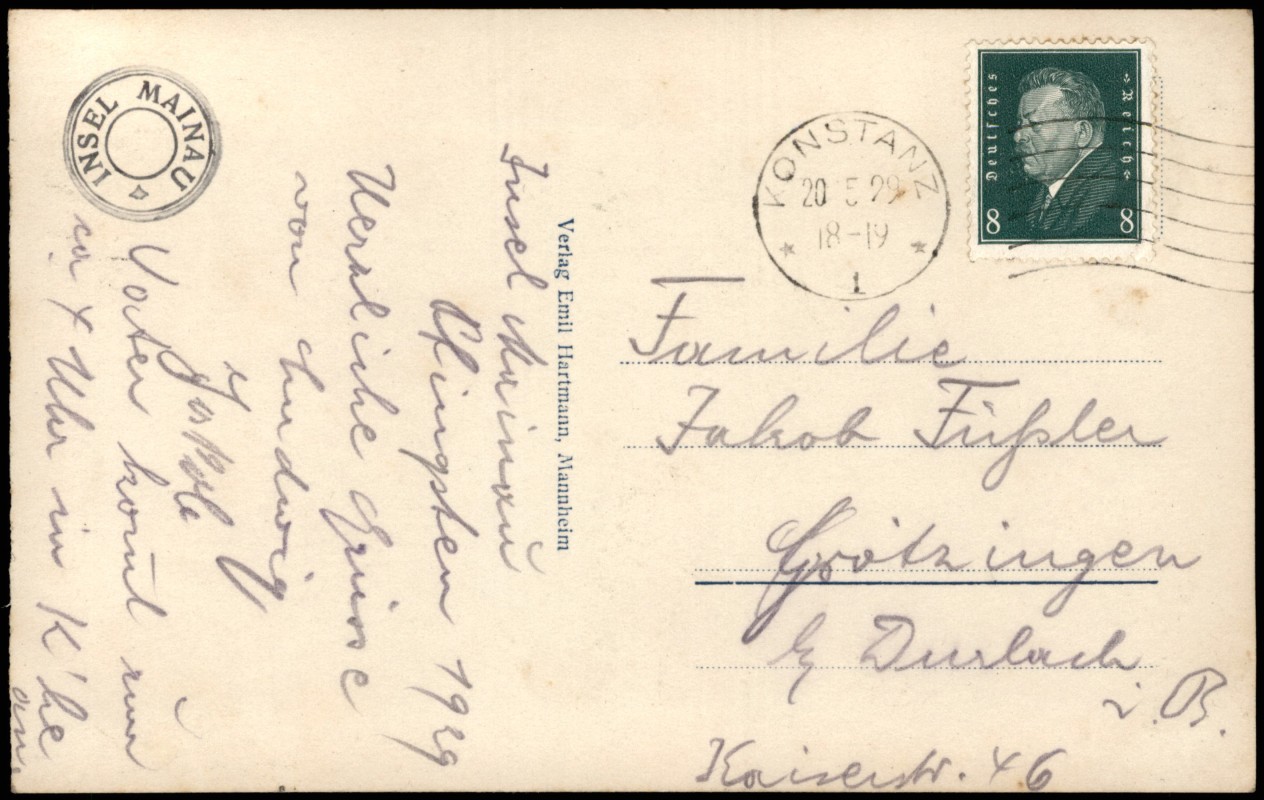 INSEL MAINAU
Insel Mainau
Pfingsten 1929
Herzliche Grüsse
von Ludwig
Vater komt um
ca 4 Uhr in K'he
an.
Verlag Emil Hartmann, Mannheim
KONSTANZ
20 5 29
18-19
1
Deutsches
Reich
8 8
Familie
Jakob Füßler
Grötzingen
b/ Durlach
i. B.
Kaiserstr. 46